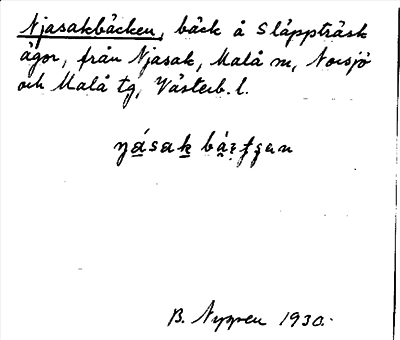 Njasakbäcken, bäck å Släppträsk
ägor, från Njasak, Malå m, Norsjö
och Malå tg, Västerb. l.
B. Nygren 1930.